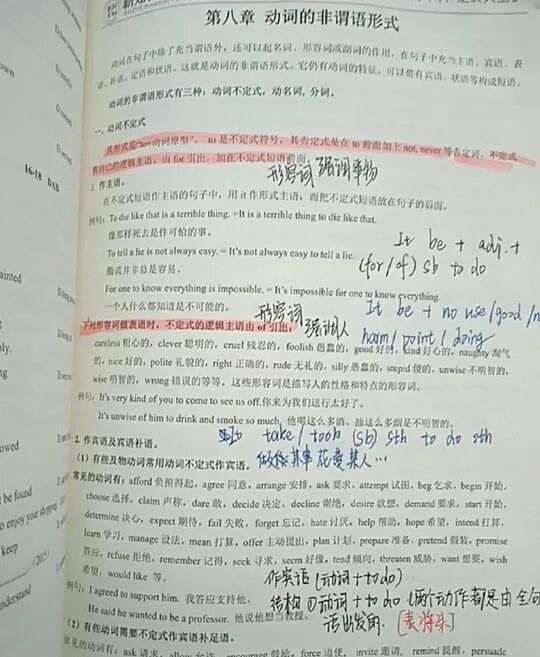 第八章 动词的非谓语形式
动词在句子中除了充当谓语外，还可以起名词、形容词或副词的作用，在句子中充当主语、宾语、表
语、补语、定语和状语。这就是动词的非谓语形式。它仍有动词的特征，可以带有宾语、状语等构成短语。
动词的非谓语形式有三种：动词不定式，动名词，分词。
一、动词不定式
其形式是“to+动词原型”，to 是不定式符号，其否定式是在 to 前面加上 not, never 等否定词，不定式
有自己的逻辑主语，由 for 引出，加在不定式短语前面。
形容词 强调事物
1. 作主语。
在不定式短语作主语的句子中，用 it 作形式主语，而把不定式短语放在句子的后面。
例句：To die like that is a terrible thing. =It is a terrible thing to die like that.
像那样死去是件可怕的事。
It be + adj. +
To tell a lie is not always easy. = It's not always easy to tell a lie.
(for/of) sb to do
撒谎并非总是容易。
For one to know everything is impossible. = It's impossible for one to know everything.
一个人什么都知道是不可能的。
形容词
It be + no use/good/
下列形容词做表语时，不定式的逻辑主语由 of 引出：
强调人
harm/point/doing
careless 粗心的，clever 聪明的，cruel 残忍的，foolish 愚蠢的，good 好的，kind 好心的，naughty 淘气
的，nice 好的，polite 礼貌的，right 正确的，rude 无礼的，silly 愚蠢的，stupid 傻的，unwise 不明智的，
wise 明智的，wrong 错误的等等。这些形容词是描写人的性格和特点的形容词。
例句：It's very kind of you to come to see us off.你来为我们送行太好了。
It's unwise of him to drink and smoke so much. 他喝这么多酒，抽这么多烟是不明智的。
It take/took (sb) sth to do sth
2. 作宾语及宾语补语。
做某事花费某人…
（1）有些及物动词常用动词不定式作宾语。
常见的动词有：afford 负担得起，agree 同意，arrange 安排，ask 要求，attempt 试图，beg 乞求，begin 开始，
choose 选择，claim 声称，dare 敢，decide 决定，decline 谢绝，desire 欲想，demand 要求，start 开始，
determine 决心，expect 期待，fail 失败，forget 忘记，hate 讨厌，help 帮助，hope 希望，intend 打算，
learn 学习，manage 设法，mean 打算，offer 主动提出，plan 计划，prepare 准备，pretend 假装，promise
答应，refuse 拒绝，remember 记得，seek 寻求，seem 好像，tend 倾向，threaten 威胁，want 想要，wish
希望，would like 等。
作宾语(动词+to do)
例句：I agreed to support him. 我答应支持他。
结构①动词+to do (两个动作都是由主句
He said he wanted to be a professor. 他说他想当教授。
语出发的) [表将来]
（2）有些动词需要不定式作宾语补足语。
常见的动词有：ask 请求，allow 允许，encourage 鼓励，force 迫使，invite 邀请，remind 提醒，persuade
16-18 DAB
ainted
owed
be found
o enjoy your shopping
keep
(2015
nderstand